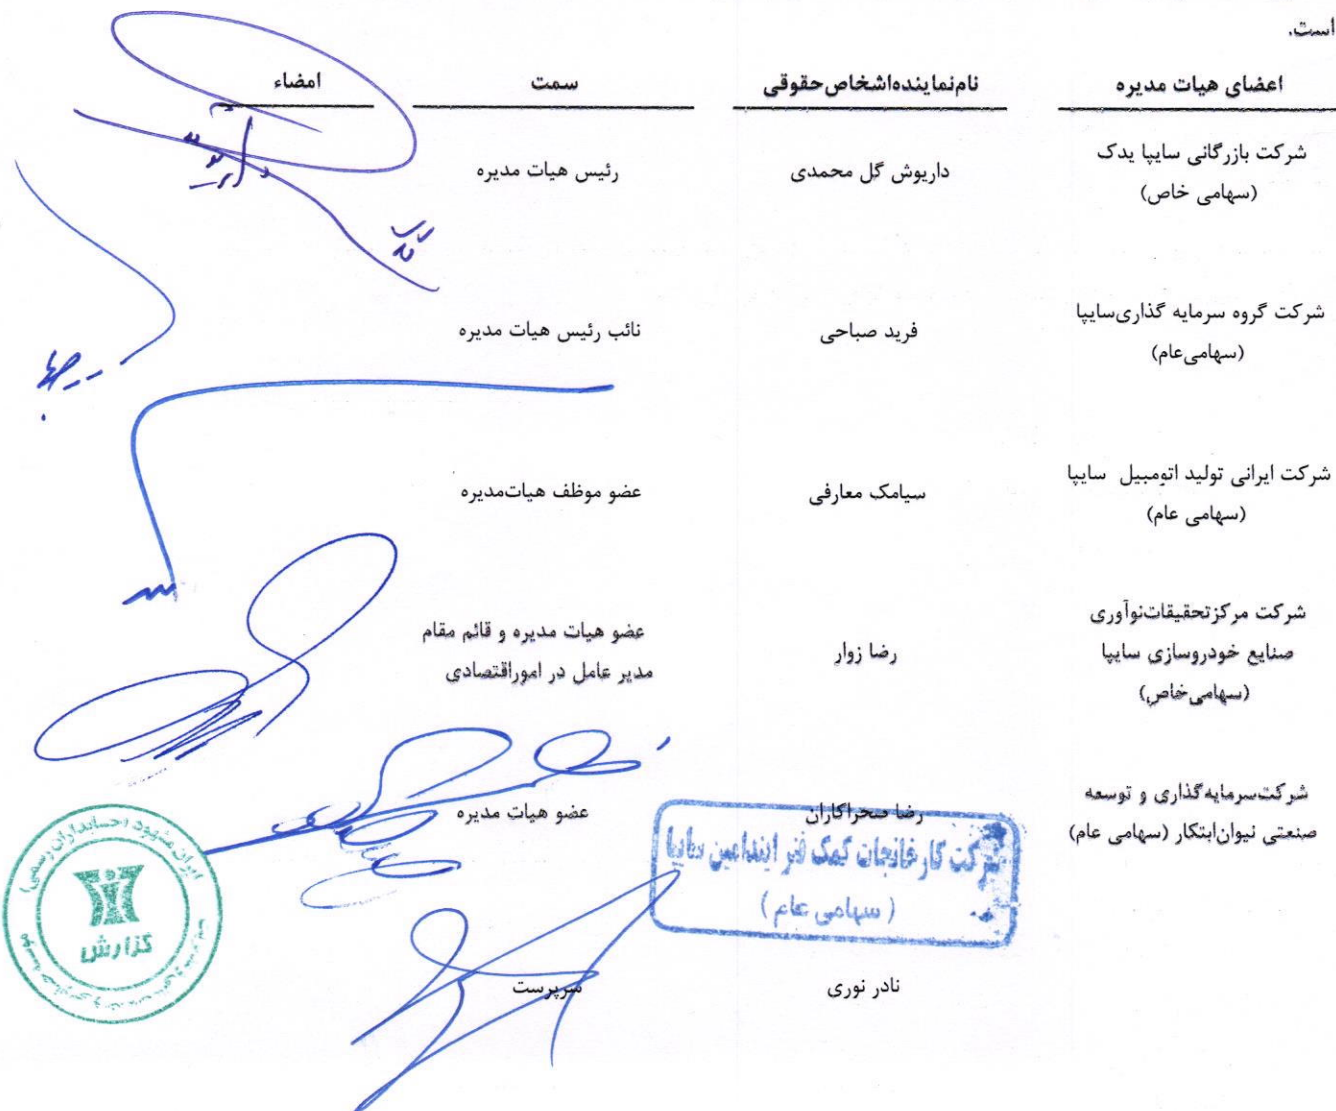 است.
اعضای هیات مدیره نام‌نماینده‌اشخاص‌حقوقی سمت امضاء
شرکت بازرگانی سایپا یدک
(سهامی خاص)
داریوش گل محمدی
رئیس هیات مدیره
شرکت گروه سرمایه گذاری‌سایپا
(سهامی‌عام)
فرید صباحی
نائب رئیس هیات مدیره
شرکت ایرانی تولید اتومبیل سایپا
(سهامی عام)
سیامک معارفی
عضو موظف هیات‌مدیره
شرکت مرکزتحقیقات‌نوآوری
صنایع خودروسازی سایپا
(سهامی‌خاص)
رضا زوار
عضو هیات مدیره و قائم مقام
مدیر عامل در اموراقتصادی
شرکت‌سرمایه‌گذاری و توسعه
صنعتی نیوان‌ابتکار (سهامی عام)
رضا صحراکاران
عضو هیات مدیره
شرکت کارخانجات کمک فنر ایندامین سایپا
(سهامی عام)
نادر نوری
سرپرست
گزارش